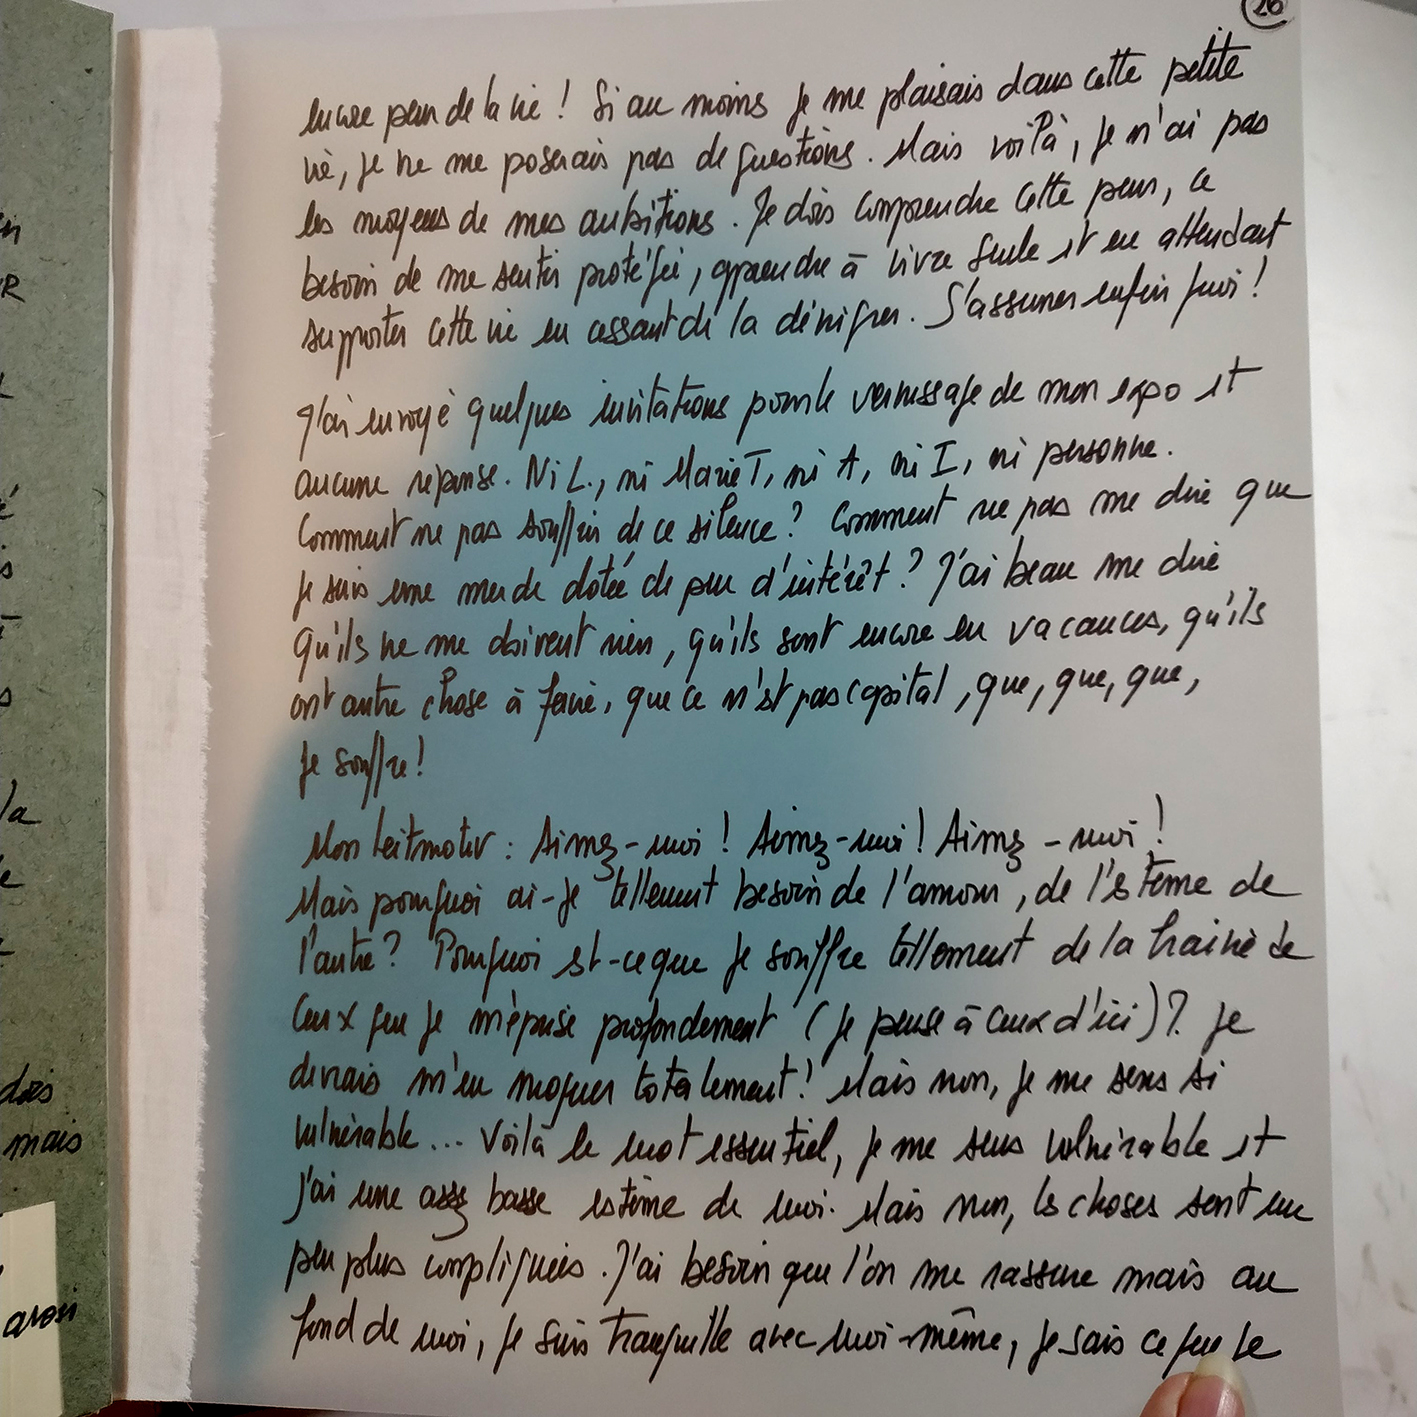 26
encore peur de la vie ! Si au moins je me plaisais dans cette petite
vie, je ne me poserais pas de questions. Mais voilà, je n'ai pas
les moyens de mes ambitions. Je dois comprendre cette peur, ce
besoin de me sentir protégée, apprendre à vivre seule et en attendant
supporter cette vie en cessant de la dénigrer. S'assumer enfin quoi !
J'ai envoyé quelques invitations pour le vernissage de mon expo et
aucune réponse. Ni L., ni Marie T, ni A, ni I, ni personne.
Comment ne pas souffrir de ce silence ? Comment ne pas me dire que
je suis une merde dotée de peu d'intérêt ? J'ai beau me dire
qu'ils ne me doivent rien, qu'ils sont encore en vacances, qu'ils
ont autre chose à faire, que ce n'est pas capital, que, que, que,
Je souffre !
Mon leitmotiv : Aimez-moi ! Aimez-moi ! Aimez-moi !
Mais pourquoi ai-je tellement besoin de l'amour, de l'estime de
l'autre ? Pourquoi est-ce que je souffre tellement de la haine de
ceux que je méprise profondement (je pense à ceux d'ici) ? Je
devrais m'en moquer totalement ! Mais non, je me sens si
vulnérable... Voilà le mot essentiel, je me sens vulnérable et
j'ai une assez basse estime de moi. Mais non, les choses sont un
peu plus compliquées. J'ai besoin que l'on me rassure mais au
fond de moi, je suis tranquille avec moi-même, je sais ce que je
la
dois
mais